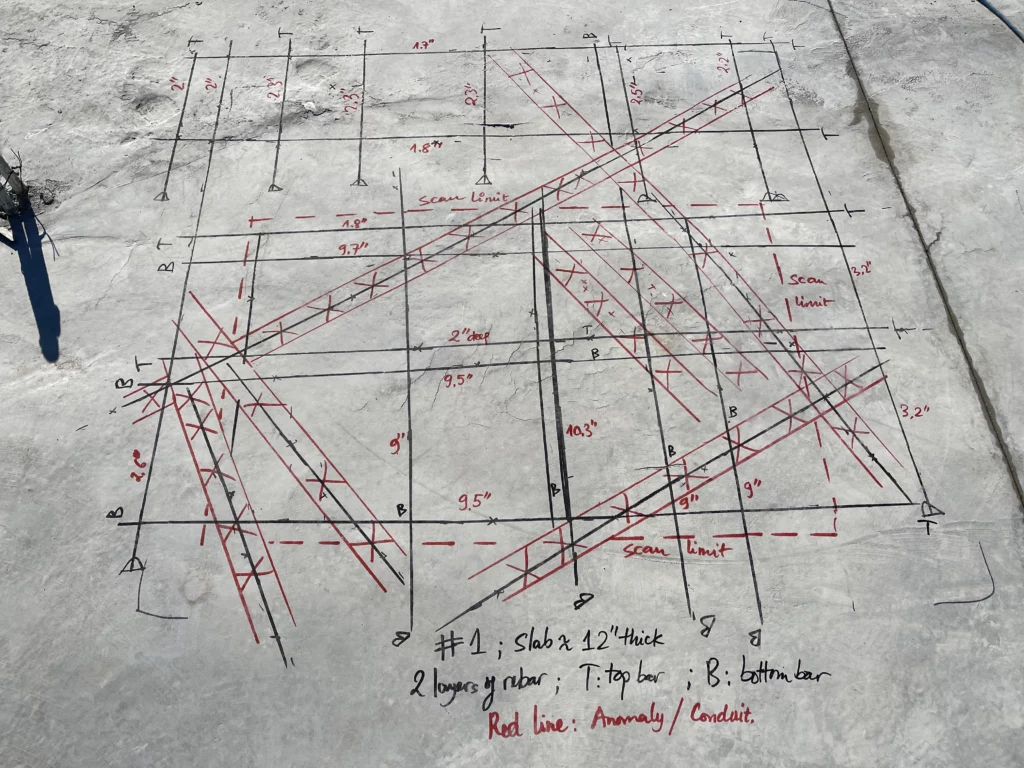 T T T T 1.7" B T T T
2" 2" 2.3" 2.3" 2.3" 2.5" 2.2"
1.8" T
scan limit
T 1.8" T
B 9.7" 3.2"
scan
limit
2" deep T T
T B
B 9.5"
B 3.2"
2.6" 9" 10.3" B
B B 9.5" B 9" 9"
T
scan limit
B B B B
#1 ; Slab ≈ 12" thick
2 layers of rebar ; T: top bar ; B: bottom bar
Red line: Anomaly / Conduit.